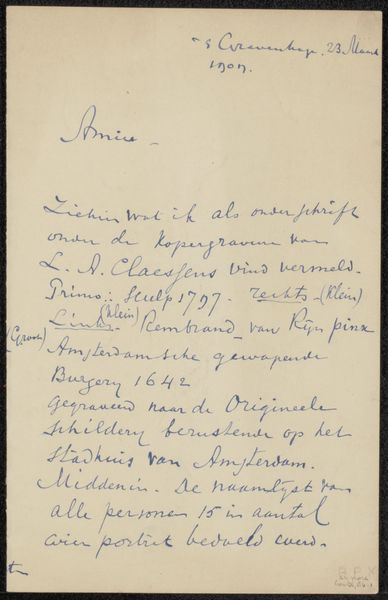 's Gravenhage. 23 Maart
1909.
Amice -
Ziehier wat ik als onderschrift
onder de Kopergravure van
L. A. Claessens vind vermeld.
Primo: Sculp 1797. rechts - (Klein)
Links. (Klein) Rembrand van Rijn pinx
(Groot)
Amsterdamsche gewapende
Burgery 1642
gegraveerd naar de Origineele
Schildery berustende op het
Stadhuis van Amsterdam.
Middenin. De naamlyst van
alle personen 15 in aantal
wier portret bedoeld werd.